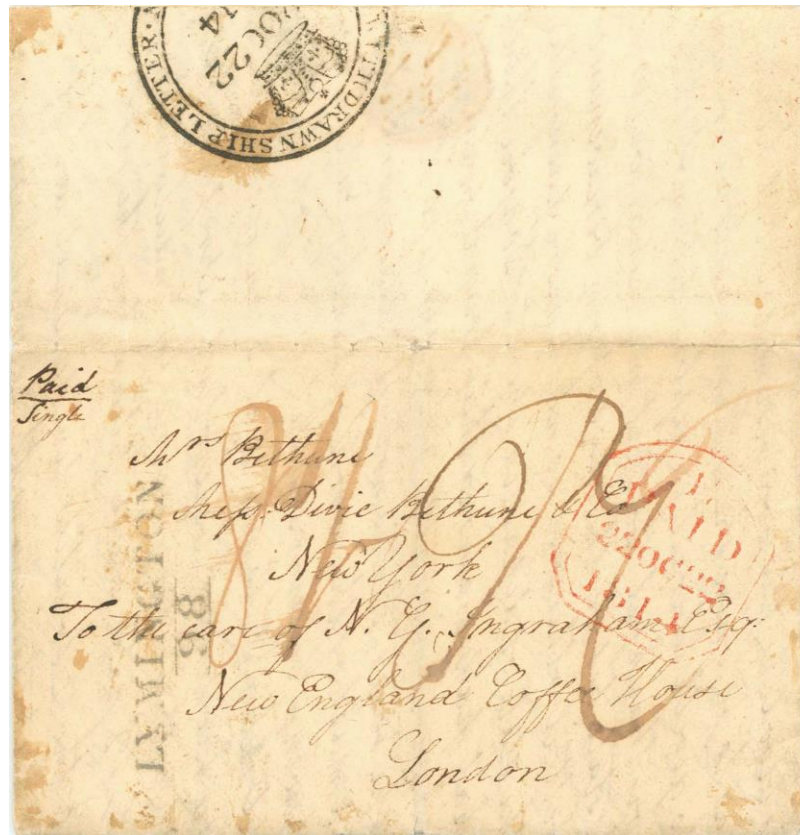 WITHDRAWN SHIP LETTER
OC22
14
Paid
Single
Mrs Bethune
Mess: Divie Bethune & Co
New York
To the care of N. G. Ingraham Esq:
New England Coffee House
London
LYMINGTON
86
PAID
22OC22
1814